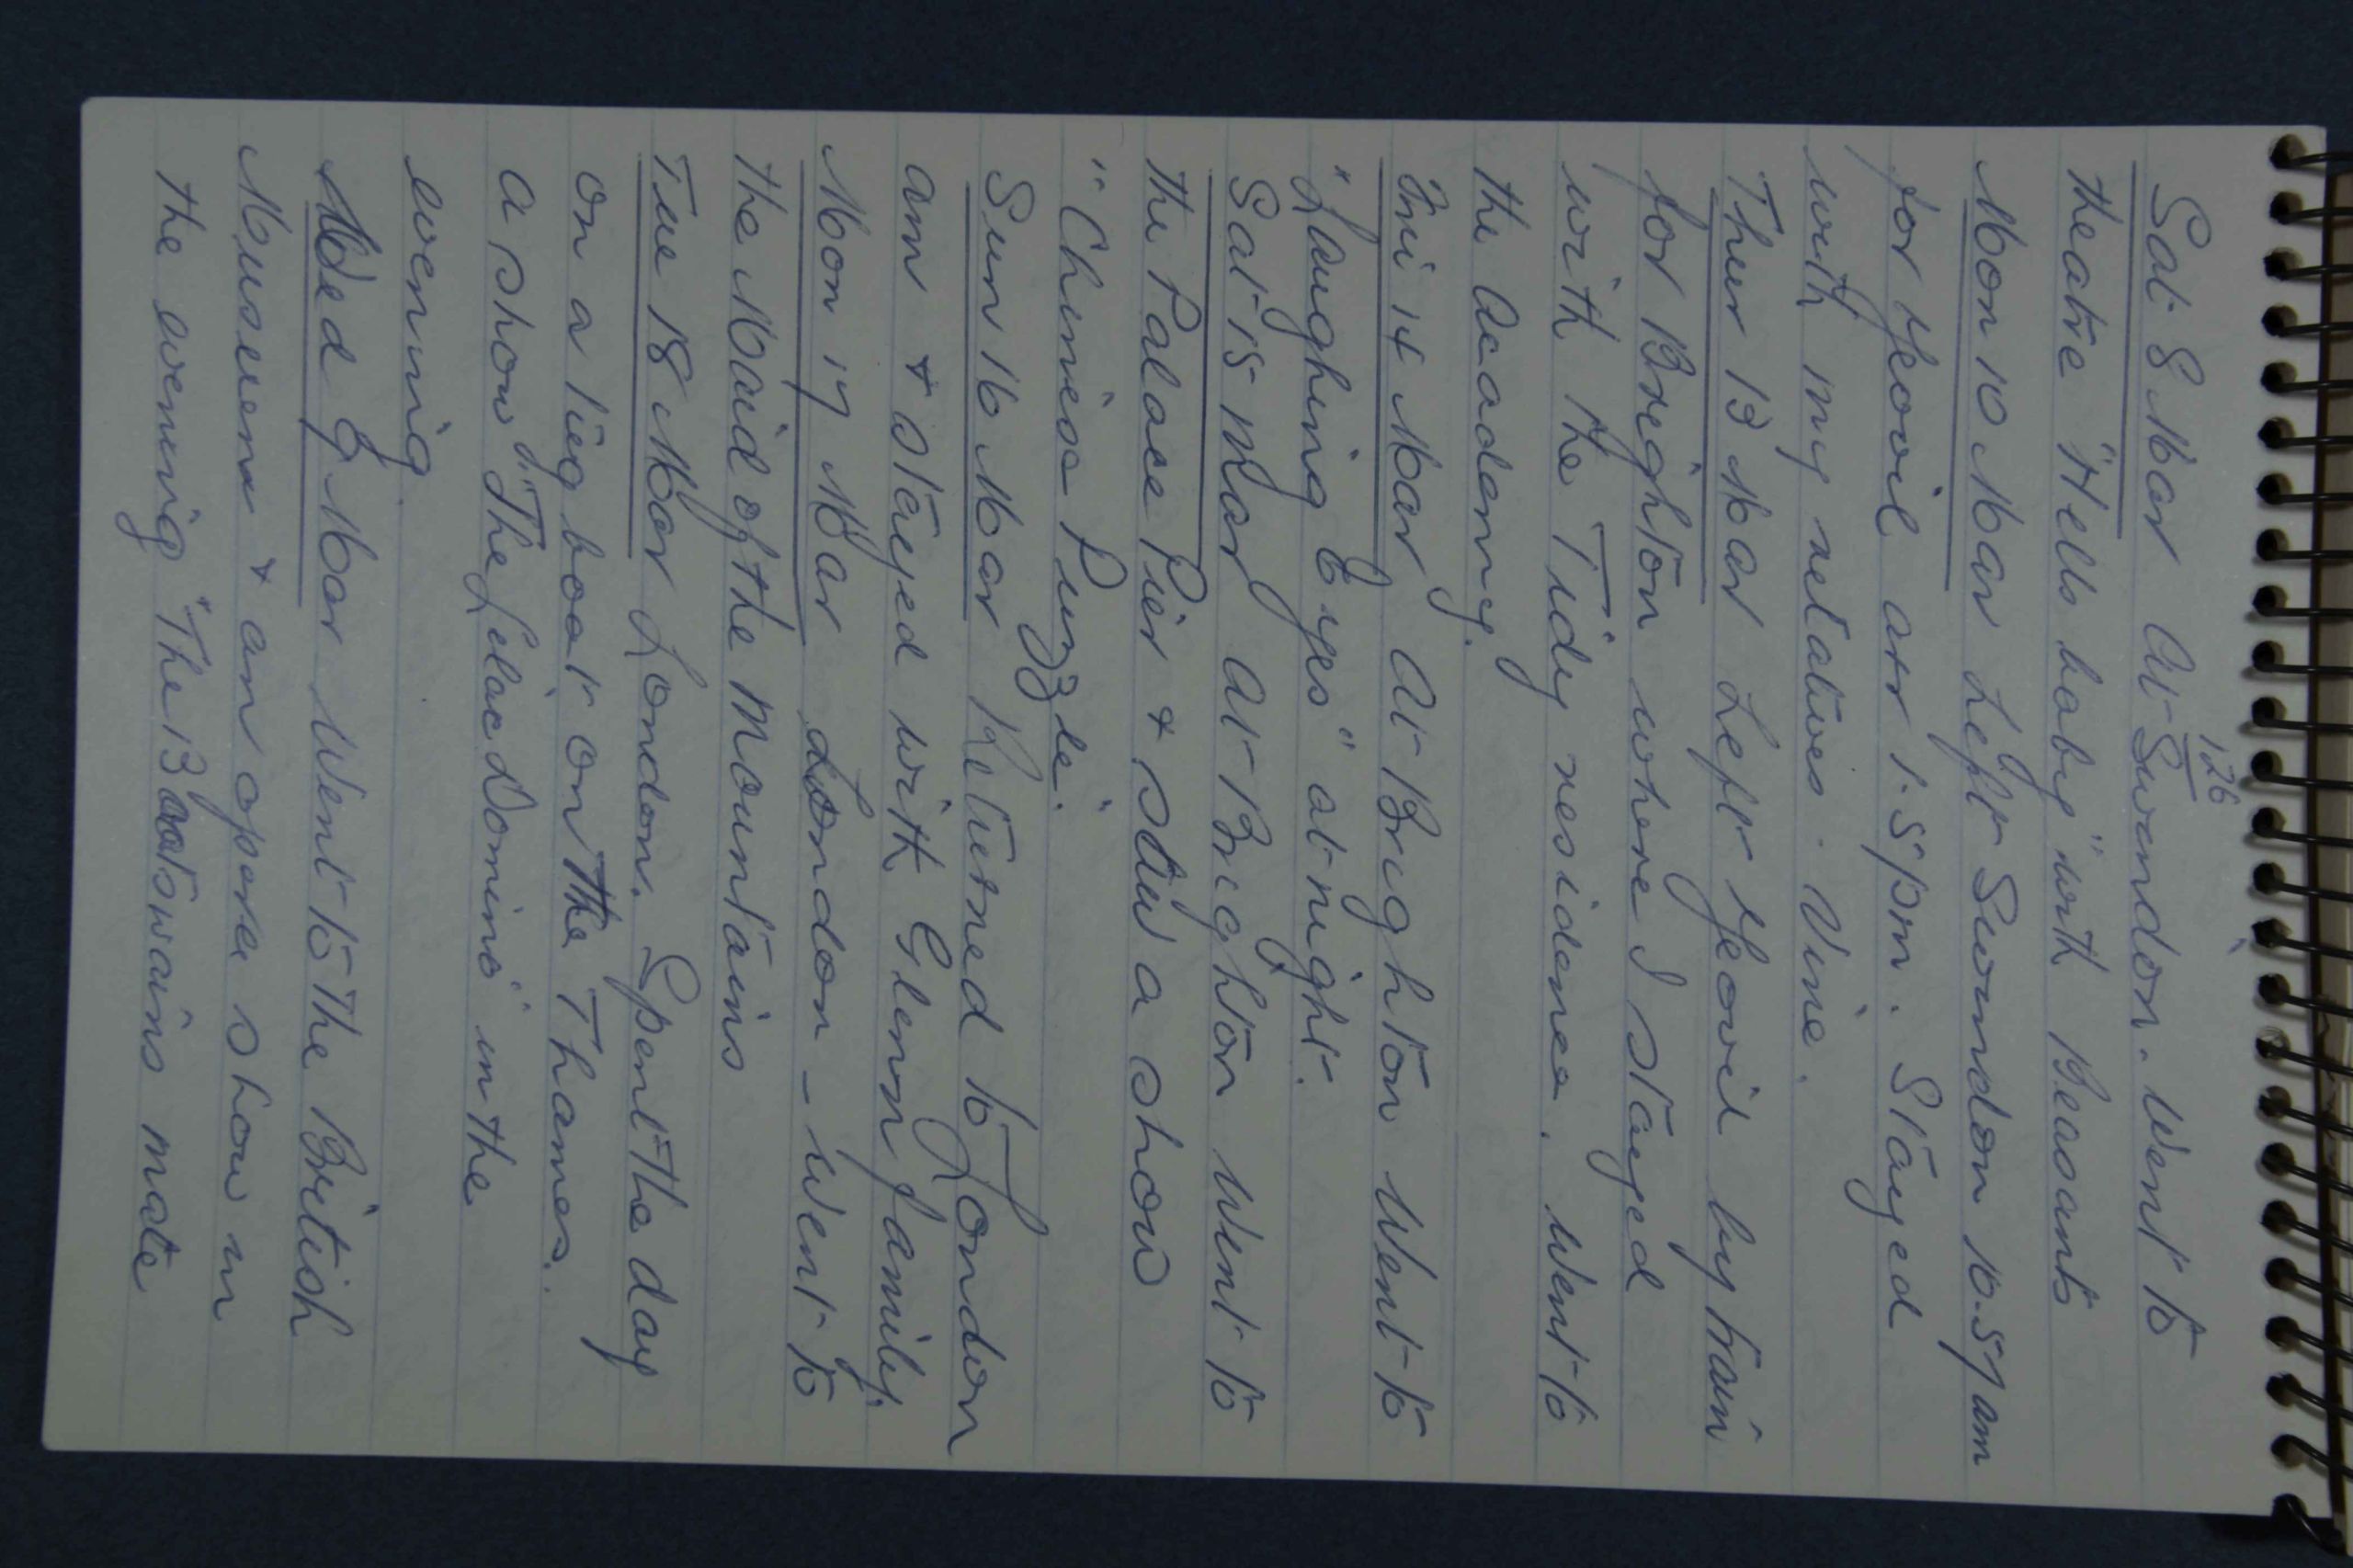 126
Sat 8 Mar At Swindon. Went to
theatre "Hello baby" with Beasants
Mon 10 Mar Left Swindon 10.57am
for Yeovil arr 1.5pm. Stayed
with my relatives. Vine.
Thur 13 Mar Left Yeovil by train
for Brighton where I stayed
with the Tidy residence. Went to
the Academy.
Fri 14 Mar At Brighton Went to
"Laughing Eyes" at night.
Sat 15 Mar At Brighton Went to
the Palace Pier & saw a show
"Chinese Puzzle."
Sun 16 Mar Returned to London
am & stayed with Glenn family.
Mon 17 Mar London – Went to
the Maid of the Mountains
Tue 18 Mar London. Spent the day
on a tug boat on the Thames.
a show "The Lilac Domino" in the
evening.
Wed 19 Mar Went to the British
Museum & an opera show in
the evening "The 13 mate